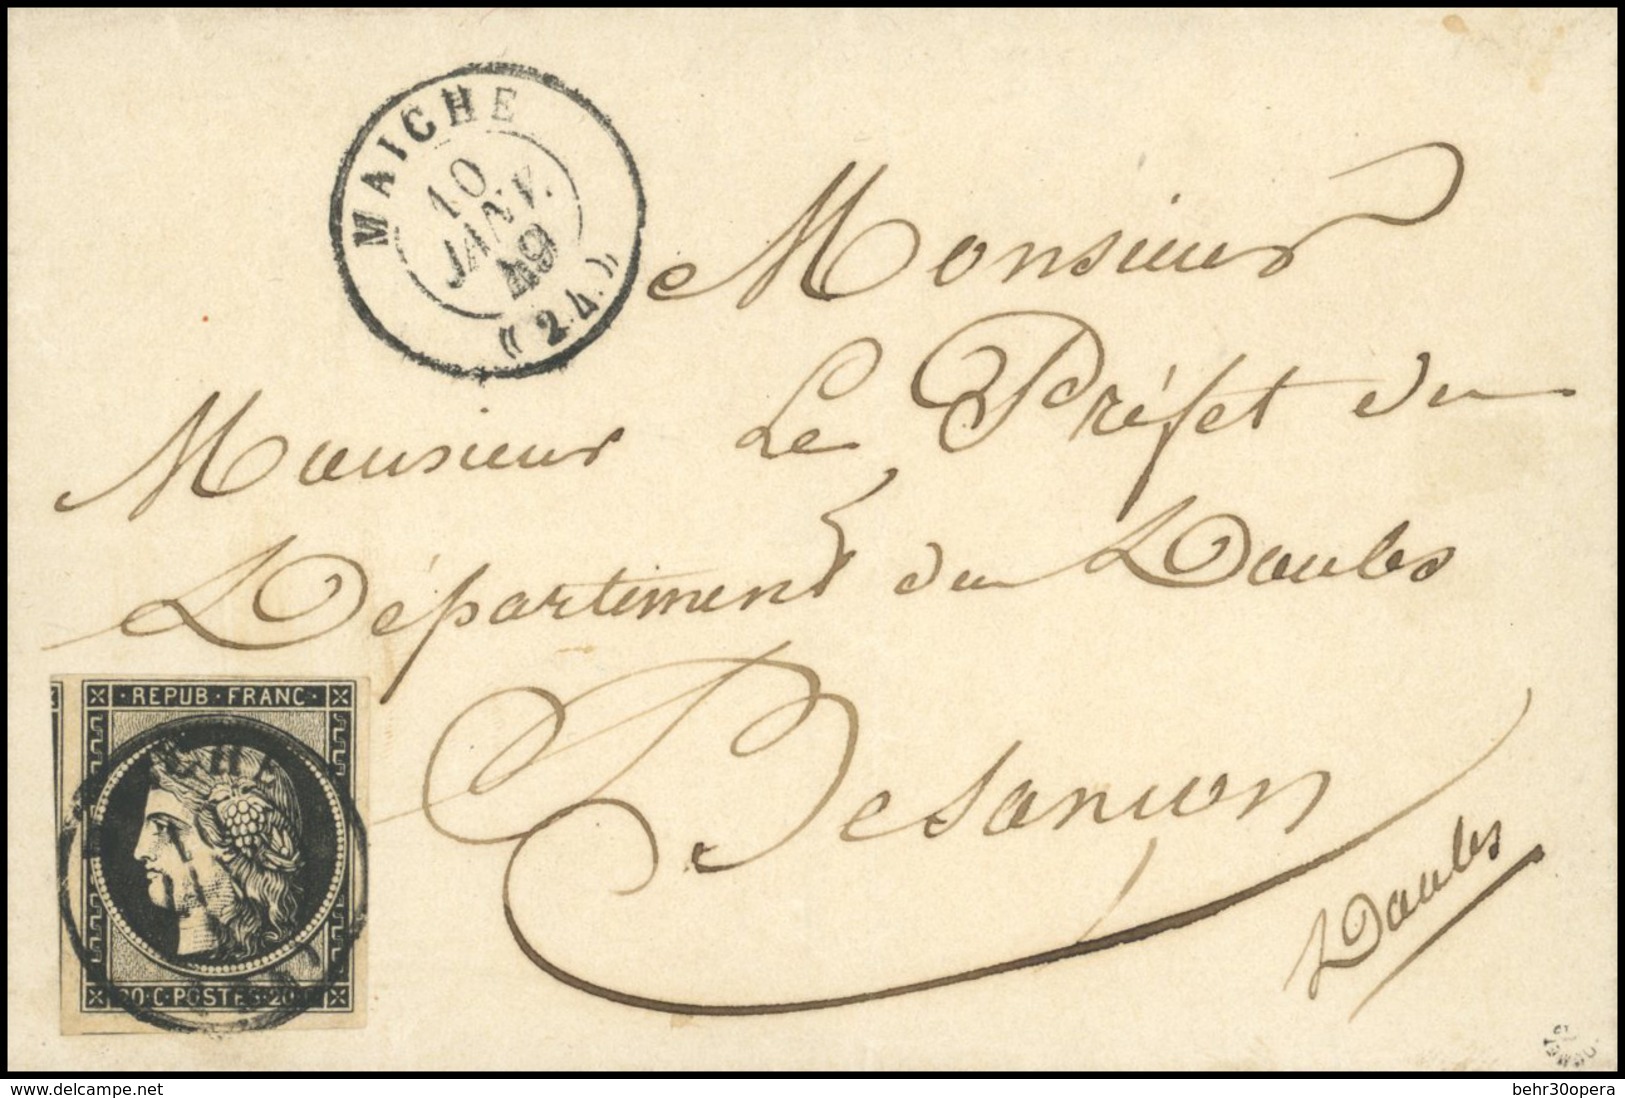 MAICHE
10
JANV.
49
(24)
Monsieur
Monsieur Le Préfet du
Département du Doubs
Besançon
Doubs
REPUB·FRANC·
CHE
20·C·POSTES·20·C
www.delcampe.net
behr30opera